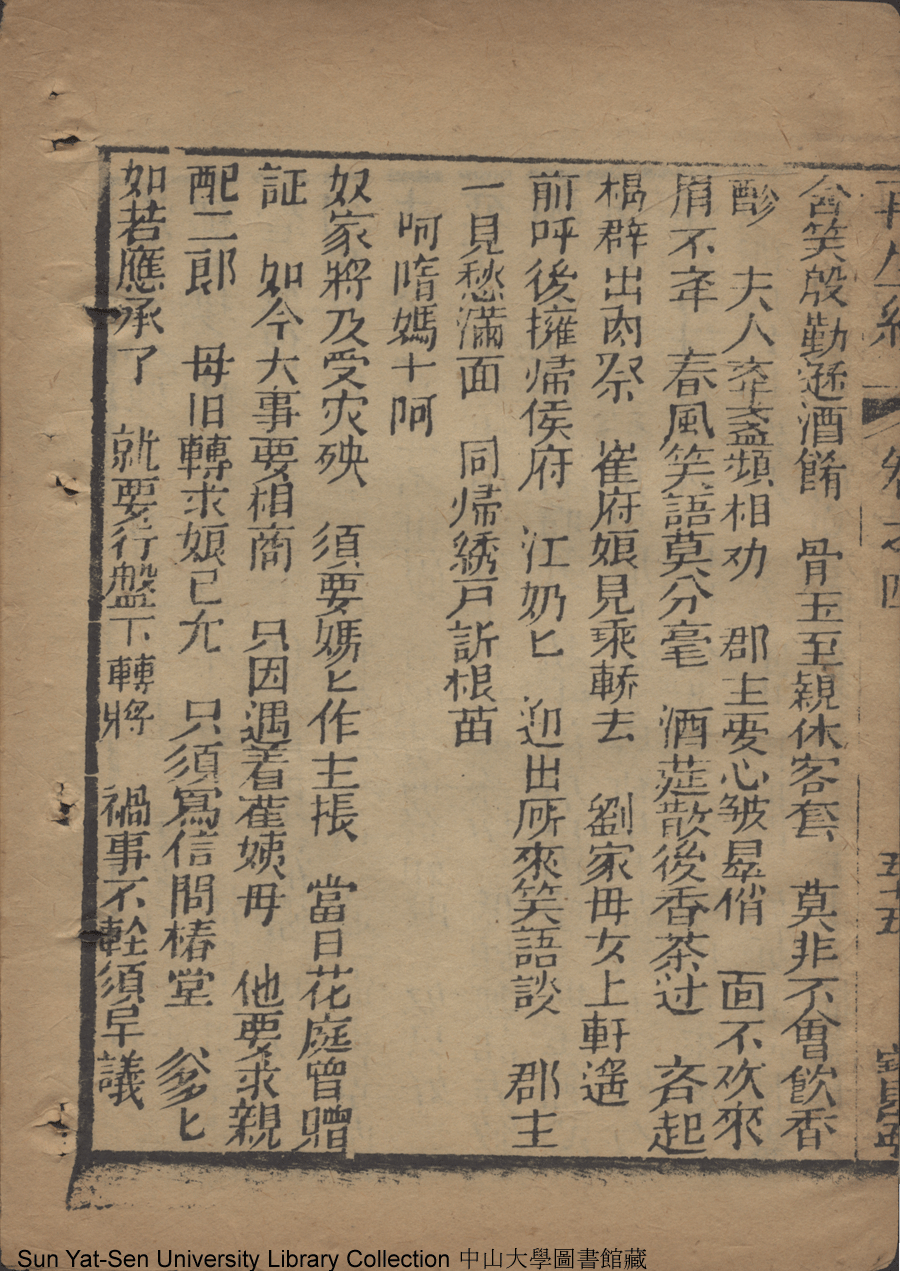 再生緣 卷之四 五十五
含笑殷勤遜酒餚 骨玉至親休客套 莫非不會飲香
醪 夫人奉盞頻相劝 郡主要心皱 俏 面不 來
眉不 春風笑語莫分毫 酒莚散後香茶过 吝起
群出内祭 崔府娘見乘轎去 劉家母女上軒遙
前呼後擁帰侯府 江奶匕 迎出所來笑語談 郡主
一見愁滿面 同帰綉戸訴根苗
呵隋媽十呵
奴家將及受灾殃 須要媽匕作主張 當日花庭曾贈
証 如今大事要相商 只因遇着崔姨母 他要求親
配二郎 母旧轉求娘已允 只須寫信問椿堂 爹匕
如若應承了 就要行盤下轉將 禍事不輕須早議
Sun Yat-Sen University Library Collection 中山大學圖書館藏